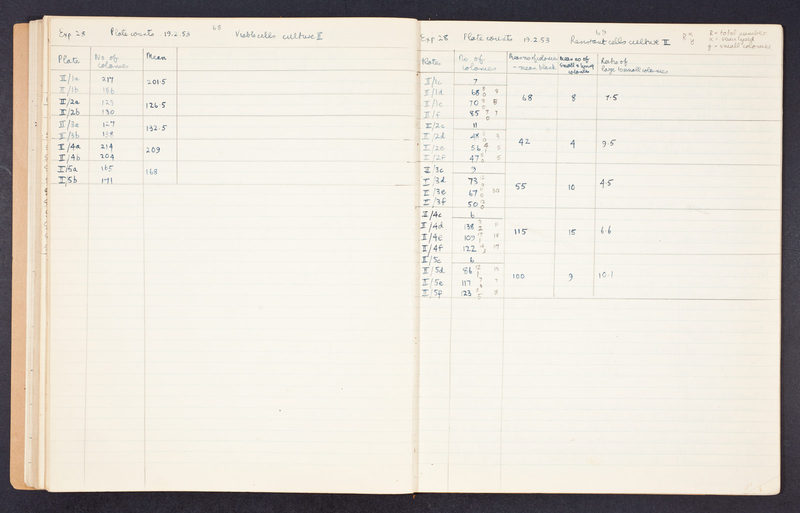 Exp 28 Plate counts 19.2.53 Viable cells culture II
Plate No. of colonies Mean
II/1a 217 201.5
II/1b 186
II/2a 123 126.5
II/2b 130
II/3a 127 132.5
II/3b 138
II/4a 214 209
II/4b 204
II/5a 165 168
II/5b 171
Exp 28 Plate counts 19.2.53 69 Remnant cells culture II
R = total number
y = small colonies
Plate No. of colonies Mean no of colonies - mean blank Mean no of small colonies Ratio of large to small colonies
II/1c 7
II/1d 68 68 8 7.5
II/1e 70
II/1f 85
II/2c 11
II/2d 48 42 4 9.5
II/2e 56
II/2f 47
II/3c 9
II/3d 73 55 10 4.5
II/3e 67
II/3f 50
II/4c 6
II/4d 138 115 15 6.6
II/4e 109
II/4f 122
II/5c 6
II/5d 86 100 9 10.1
II/5e 117
II/5f 123